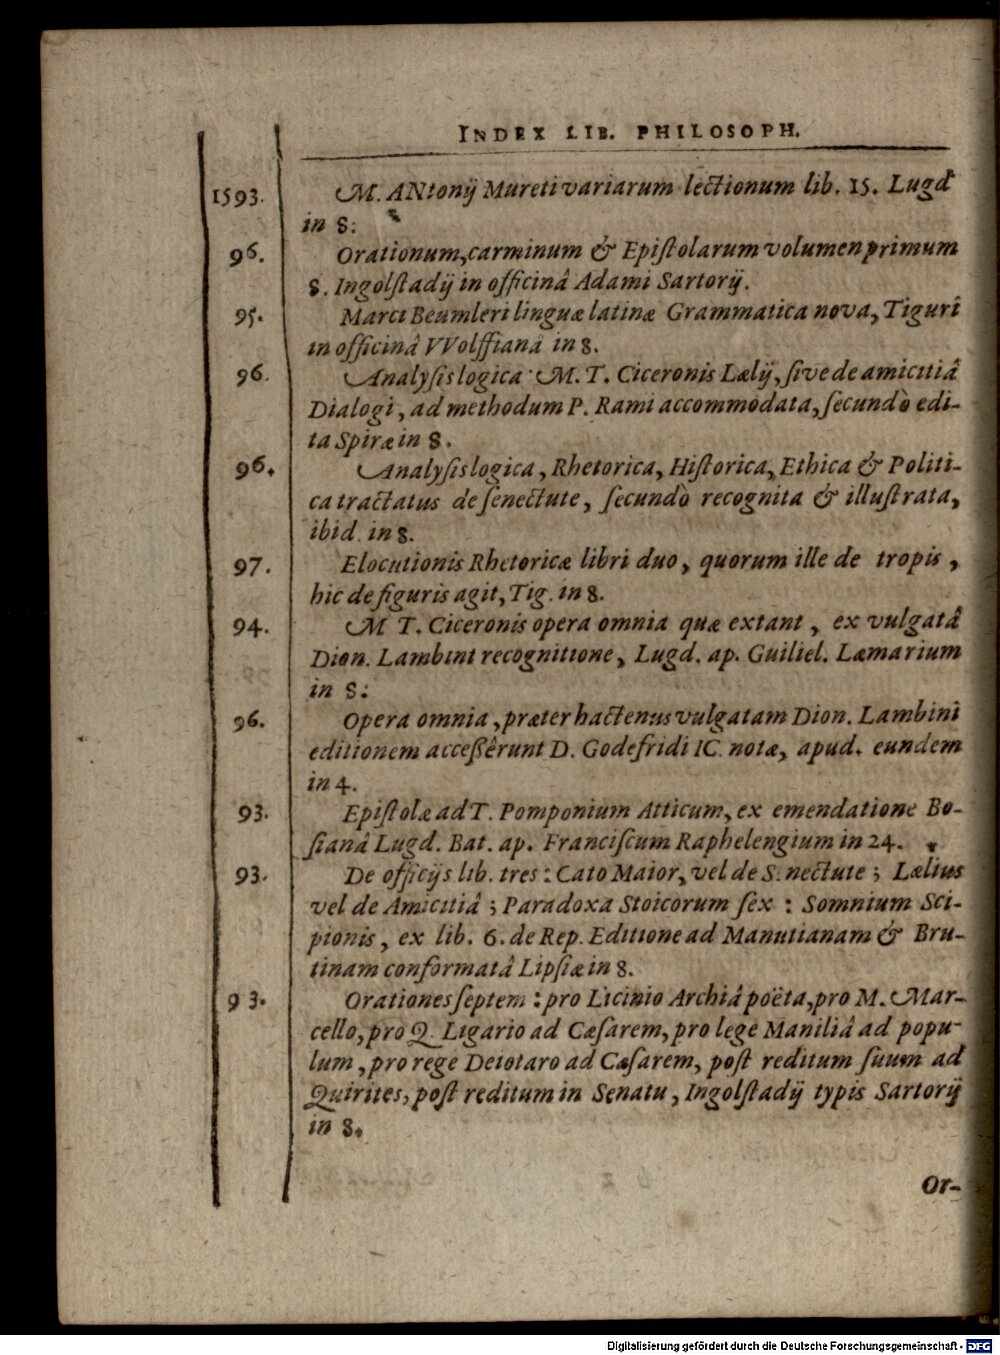 INDEX LIB. PHILOSOPH.
1593. M. ANtonij Mureti variarum lectionum lib. 15. Lugd
in 8:
96. Orationum, carminum & Epiſtolarum volumen primum
8. Ingolſtadij in officinâ Adami Sartorij.
95. Marci Beumleri linguæ latinæ Grammatica nova, Tiguri
in officinâ VVolffianâ in 8.
96. Analyſis logica M. T. Ciceronis Lælij, ſive de amicitiâ
Dialogi, ad methodum P. Rami accommodata, ſecundò edi-
ta Spiræ in 8.
96. Analyſis logica, Rhetorica, Hiſtorica, Ethica & Politi-
ca tractatus de ſenectute, ſecundò recognita & illuſtrata,
ibid. in 8.
97. Elocutionis Rhetoricæ libri duo, quorum ille de tropis,
hic de figuris agit, Tig. in 8.
94. M T. Ciceronis opera omnia quæ extant, ex vulgatâ
Dion. Lambini recognitione, Lugd. ap. Guiliel. Læmarium
in 8:
96. Opera omnia, præter hactenus vulgatam Dion. Lambini
editionem acceßêrunt D. Godefridi IC. notæ, apud. eundem
in 4.
93. Epiſtolæ ad T. Pomponium Atticum, ex emendatione Bo-
ſianâ Lugd. Bat. ap. Franciſcum Raphelengium in 24.
93. De officijs lib. tres: Cato Maior, vel de S. nectute; Lælius
vel de Amicitiâ; Paradoxa Stoicorum ſex: Somnium Sci-
pionis, ex lib. 6. de Rep. Editione ad Manutianam & Bru-
tinam conformatâ Lipſiæ in 8.
93. Orationes ſeptem: pro Licinio Archiâ poëta, pro M. Mar-
cello, pro Q Ligario ad Cæſarem, pro lege Maniliâ ad popu-
lum, pro rege Deiotaro ad Cæſarem, poſt reditum ſuum ad
Quirites, poſt reditum in Senatu, Ingolſtadij typis Sartorij
in 8.
Or-
Digitalisierung gefördert durch die Deutsche Forschungsgemeinschaft - DFG